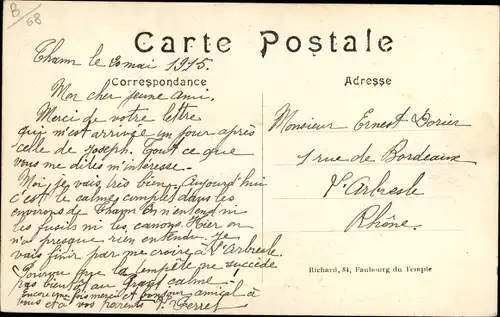 B/68
Carte Postale
Thann le 8 mai 1915.
Correspondance
Mon cher jeune ami.
Merci de votre lettre
qui m'est arrivée un jour après
celle de Joseph. Tout ce que
vous me dites m'intéresse.
Moi, je vais très bien. Aujourd'hui
c'est le calme complet dans les
environs de Thann. On n'entend ni
les fusils ni les canons. Hier on
n'a presque rien entendu. Je
vais finir par me croire à l'Arbresle.
Pourvu que la tempête ne succède
pas bientôt au grand calme.
Encore une fois merci et bonjour amical à
vous et à vos parents
Adresse
Monsieur Ernest Dorier
1 rue de Bordeaux
L'Arbresle
Rhône.
Richard, 84, Faubourg du Temple